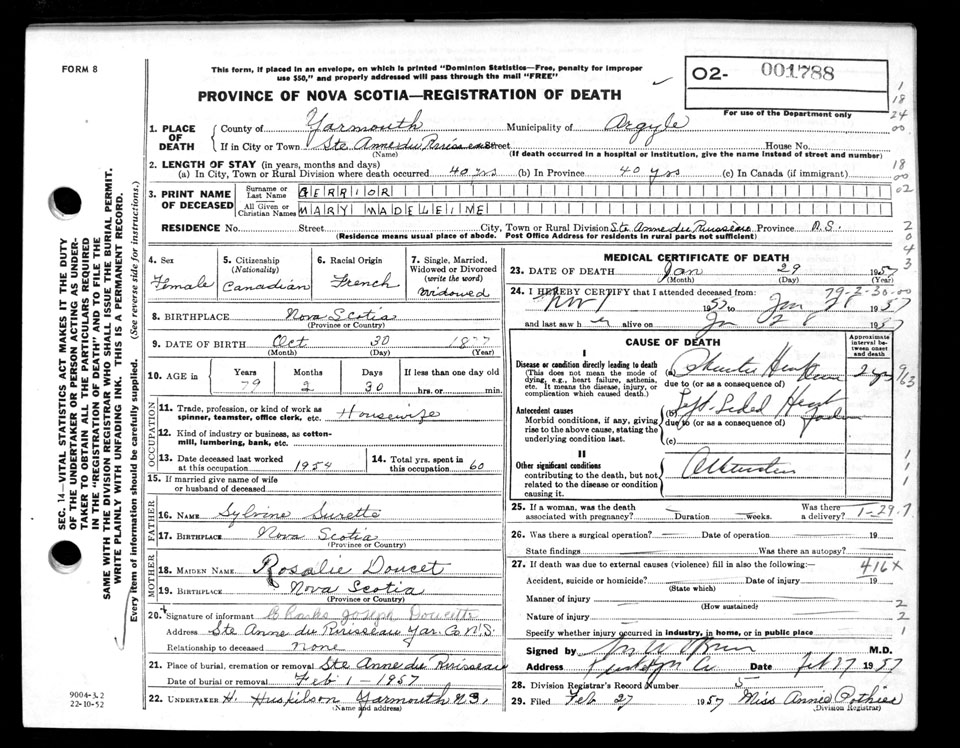 FORM 8
This form, if placed in an envelope, on which is printed "Dominion Statistics—Free, penalty for improper
use $50," and properly addressed will pass through the mail "FREE"
O2- 001788
For use of the Department only
PROVINCE OF NOVA SCOTIA—REGISTRATION OF DEATH
1. PLACE OF DEATH
County of Yarmouth Municipality of Argyle
If in City or Town Ste Anne du Ruisseau Street House No.
(Name) (If death occurred in a hospital or institution, give the name instead of street and number)
2. LENGTH OF STAY (in years, months and days)
(a) In City, Town or Rural Division where death occurred 40 yrs (b) In Province 40 yrs (c) In Canada (if immigrant)
3. PRINT NAME OF DECEASED
Surname or Last Name GERRIOR
All Given or Christian Names MARY MADELEINE
RESIDENCE No. Street City, Town or Rural Division Ste Anne du Ruisseau Province N.S.
(Residence means usual place of abode. Post Office Address for residents in rural parts not sufficient)
4. Sex Female
5. Citizenship (Nationality) Canadian
6. Racial Origin French
7. Single, Married, Widowed or Divorced (write the word) Widowed
8. BIRTHPLACE Nova Scotia
(Province or Country)
9. DATE OF BIRTH Oct 30
(Month) (Day) (Year)
10. AGE in Years Months Days If less than one day old
79 2 30 hrs. or min.
OCCUPATION
11. Trade, profession, or kind of work as spinner, teamster, office clerk, etc. Housewife
12. Kind of industry or business, as cotton-mill, lumbering, bank, etc.
13. Date deceased last worked at this occupation 1954
14. Total yrs. spent in this occupation 60
15. If married give name of wife or husband of deceased
FATHER
16. NAME Sylvine Surette
17. BIRTHPLACE Nova Scotia
(Province or Country)
MOTHER
18. MAIDEN NAME Rosalie Doucet
19. BIRTHPLACE Nova Scotia
(Province or Country)
20. Signature of informant Charles Joseph Doucette
Address Ste Anne du Ruisseau Yar. Co N.S.
Relationship to deceased none
21. Place of burial, cremation or removal Ste Anne du Ruisseau
Date of burial or removal Feb 1 - 1957
22. UNDERTAKER H. Huskilson Yarmouth N.S.
(Name and address)
MEDICAL CERTIFICATE OF DEATH
23. DATE OF DEATH Jan 29 1957
(Month) (Day) (Year)
79-2-30-00
24. I HEREBY CERTIFY that I attended deceased from:
Nov 1 1957 to Jan 28 1957
and last saw h er alive on Jan 28 1957
CAUSE OF DEATH
Approximate interval between onset and death
I
Disease or condition directly leading to death
(This does not mean the mode of dying, e.g., heart failure, asthenia, etc. It means the disease, injury, or complication which caused death.)
(a) Heart
2 yrs
due to (or as a consequence of)
Antecedent causes
Morbid conditions, if any, giving rise to the above cause, stating the underlying condition last.
(b) Left Sided Heart
due to (or as a consequence of)
(c)
II
Other significant conditions
contributing to the death, but not related to the disease or condition causing it.
25. If a woman, was the death associated with pregnancy? Duration weeks. Was there a delivery?
1-29.7
26. Was there a surgical operation? Date of operation 19
State findings Was there an autopsy?
27. If death was due to external causes (violence) fill in also the following:
416X
Accident, suicide or homicide? Date of injury 19
(State which)
Manner of injury
(How sustained)
Nature of injury
Specify whether injury occurred in industry, in home, or in public place
Signed by M.D.
Address Date Feb 27 1957
28. Division Registrar's Record Number 5
29. Filed Feb 27 1957 Miss Annie Pothier
(Division Registrar)
SEC. 14—VITAL STATISTICS ACT MAKES IT THE DUTY
OF THE UNDERTAKER OR PERSON ACTING AS UNDER-
TAKER TO OBTAIN ALL THE PARTICULARS REQUIRED
IN THE "REGISTRATION OF DEATH" AND TO FILE THE
SAME WITH THE DIVISION REGISTRAR WHO SHALL ISSUE THE BURIAL PERMIT.
WRITE PLAINLY WITH UNFADING INK. THIS IS A PERMANENT RECORD.
Every item of information should be carefully supplied. (See reverse side for instructions.)
9004-3.2
22-10-52